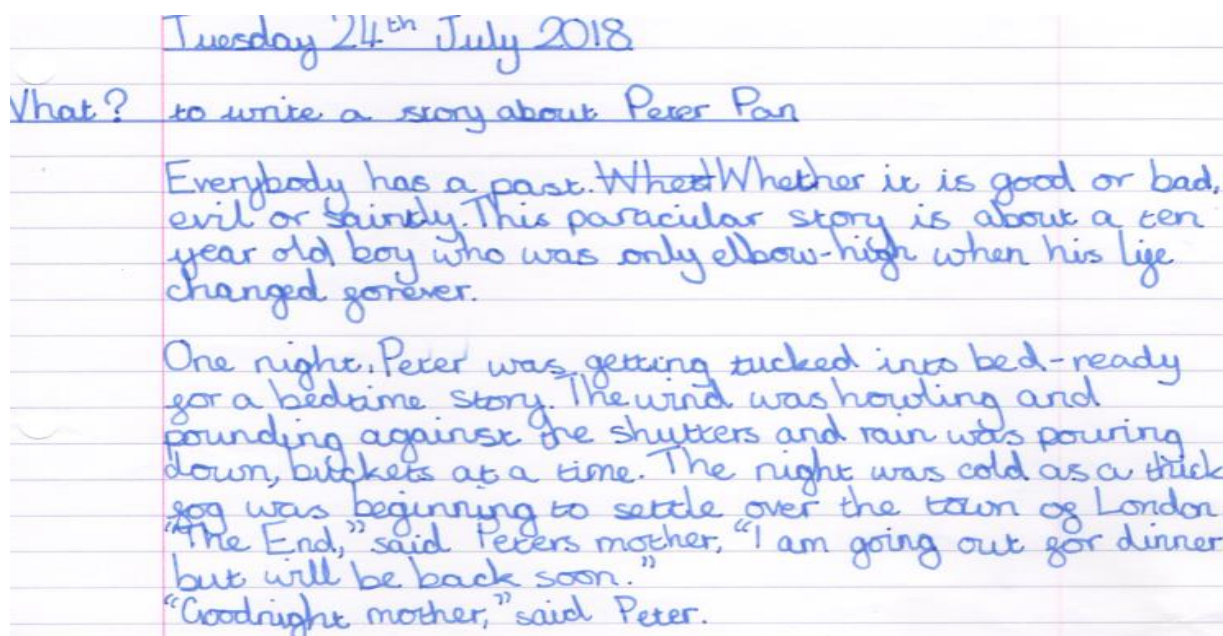 Tuesday 24th July 2018
What? to write a story about Peter Pan
Everybody has a past. Whet Whether it is good or bad,
evil or saintly. This paracular story is about a ten
year old boy who was only elbow-high when his life
changed forever.
One night, Peter was getting tucked into bed-ready
for a bedtime story. The wind was howling and
pounding against the shutters and rain was pouring
down, buckets at a time. The night was cold as a thick
fog was beginning to settle over the town of London
"The End," said Peters mother, "I am going out for dinner
but will be back soon."
"Goodnight mother," said Peter.